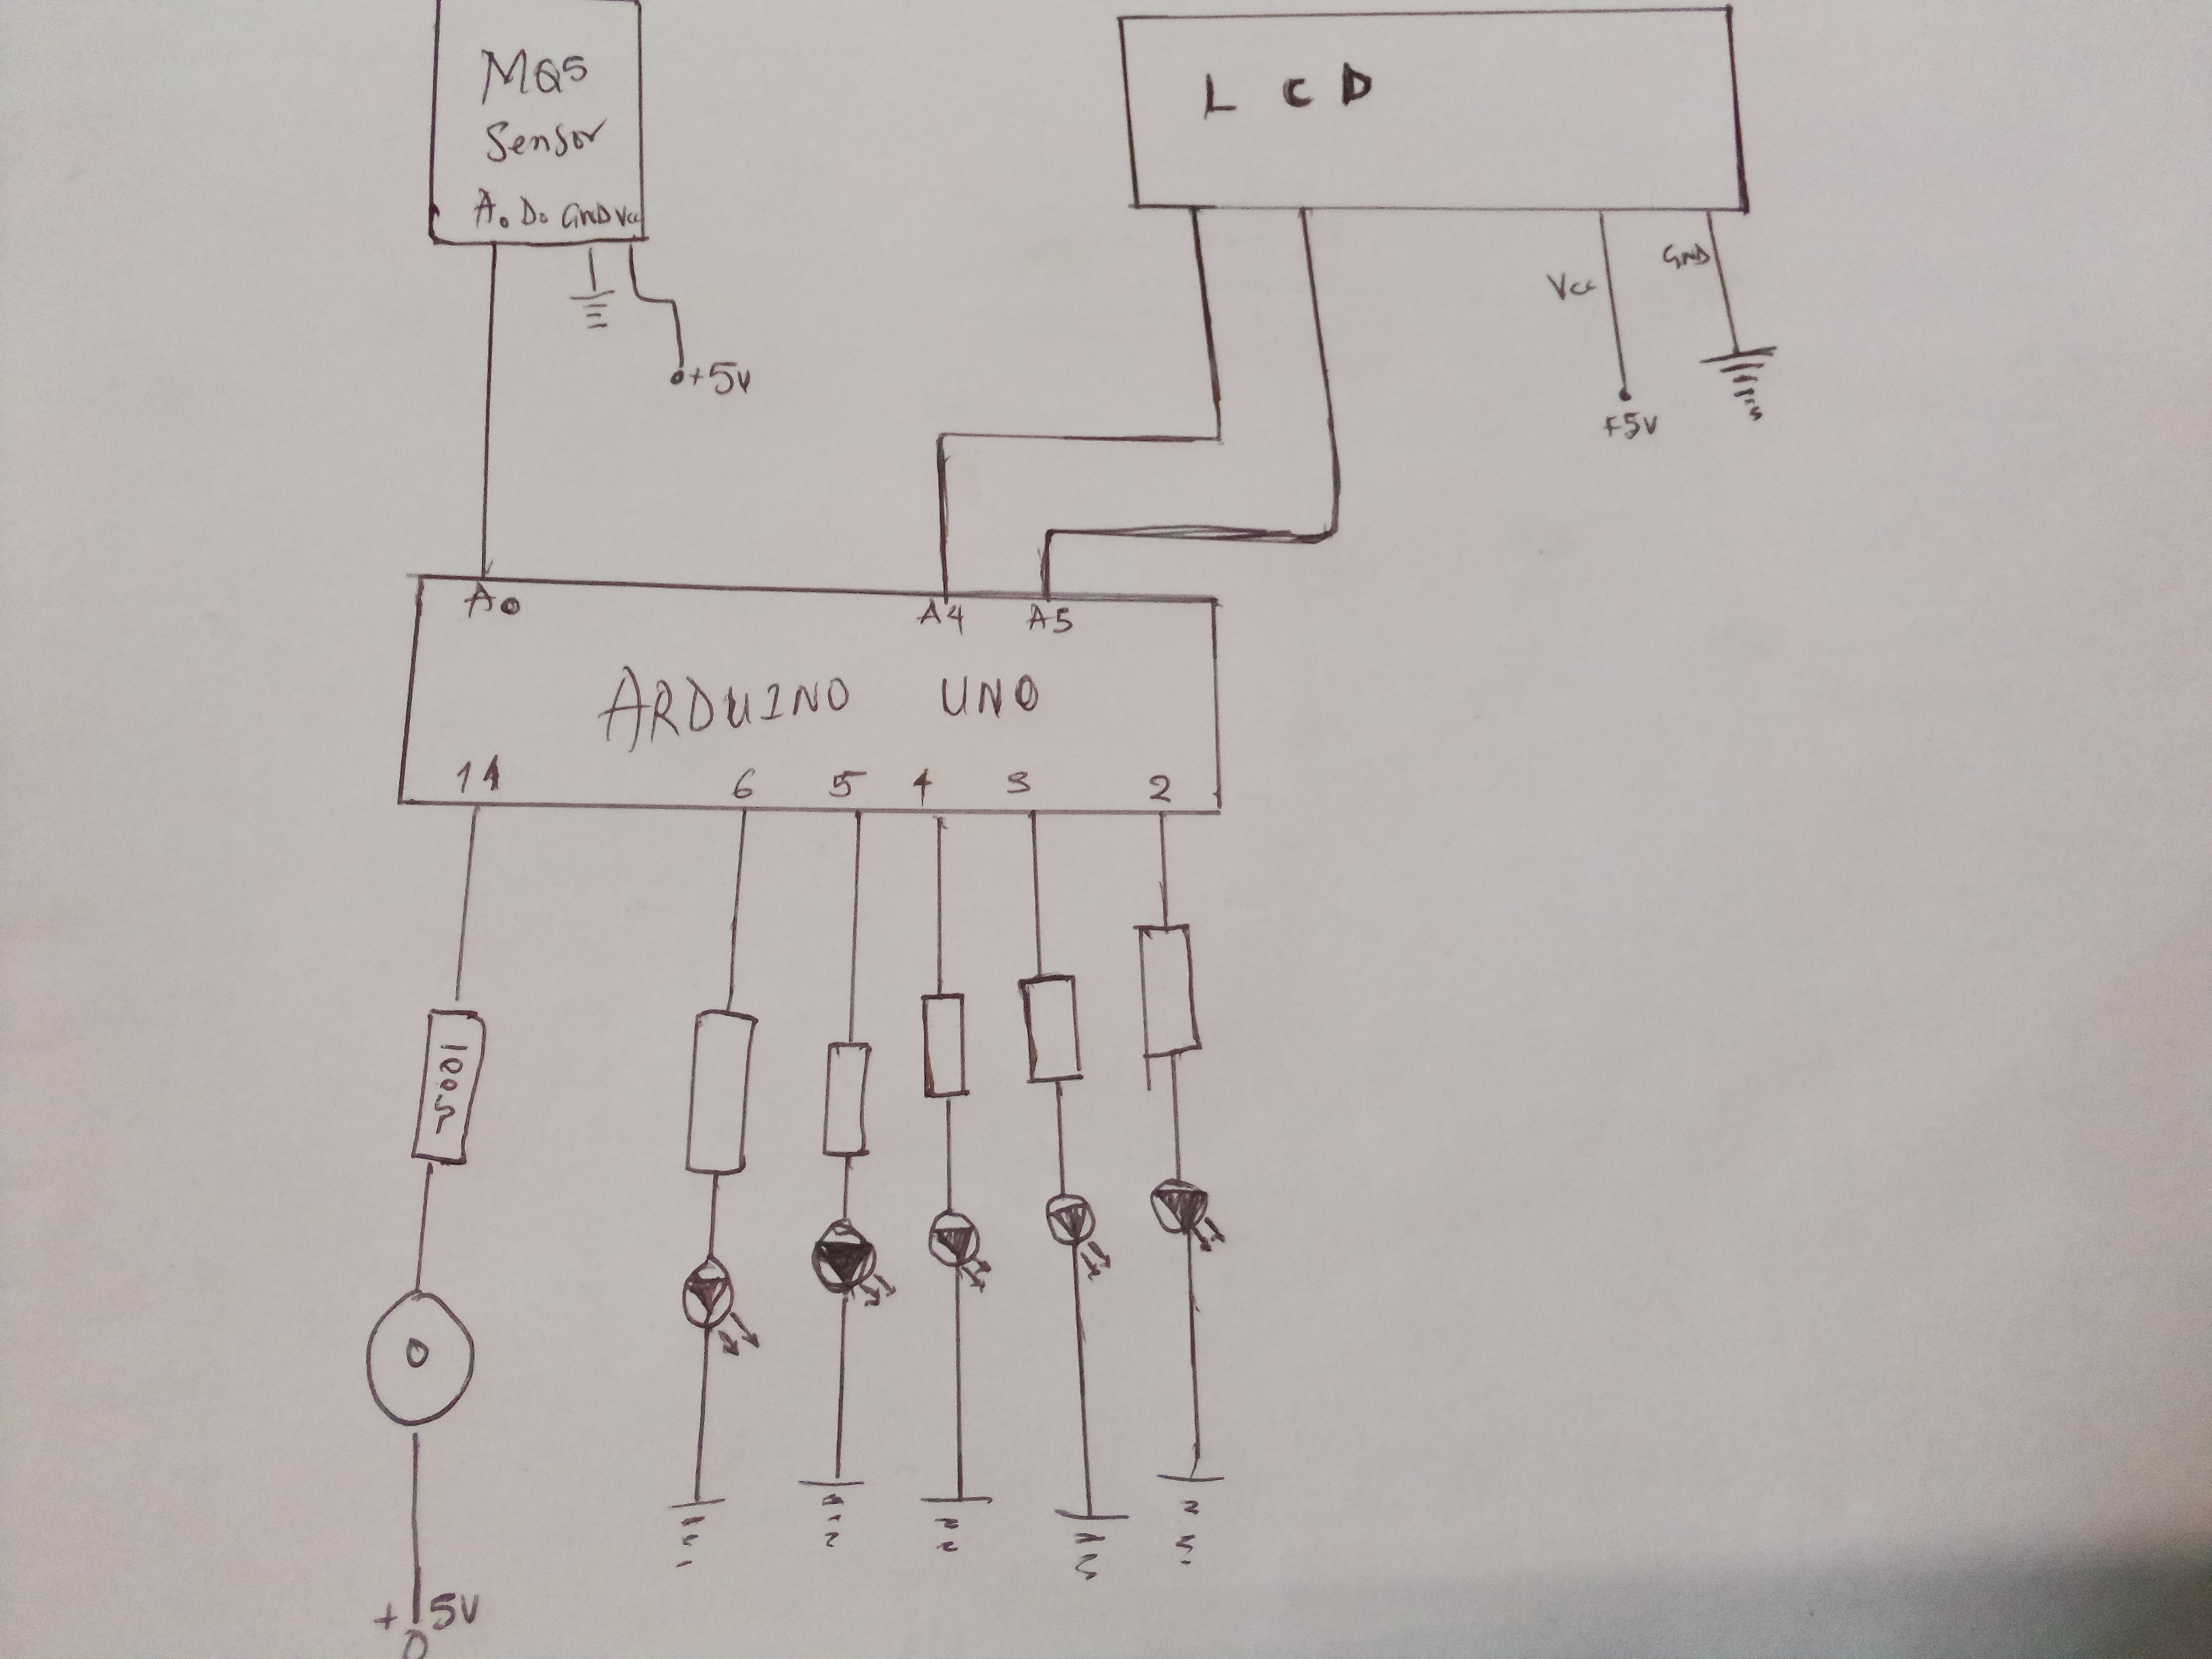 MQ5
Sensor
A0 D0 GND Vcc
+5V
L C D
Vcc
GND
+5V
A0
A4
A5
ARDUINO UNO
11
6
5
4
3
2
100Ω
+5V